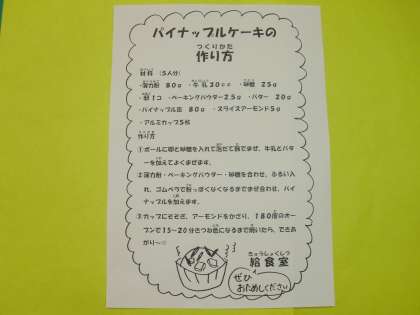 パイナップルケーキの
つくりかた
作り方
材料 (5人分)
・薄力粉 80g ・牛乳30cc ・砂糖 25g
・卵1コ ・ベーキングパウダー2.5g ・バター 20g
・パイナップル缶 80g ・スライスアーモンド5g
・アルミカップ5枚
作り方
①ボールに卵と砂糖を入れて泡だて器でまぜ、牛乳とバタ
ーを加えてよくまぜます。
②薄力粉・ベーキングパウダー・砂糖を合わせ、ふるい入
れ、ゴムベラで粉っぽくなくなるまでまぜ合わせ、パイ
ナップルを加えます。
③カップにそそぎ、アーモンドをかざり、180度のオー
ブンで15~20分きつね色になるまで焼いたら、できあ
がり~
きゅうしょくしつ
給食室
ぜひ
おためしください